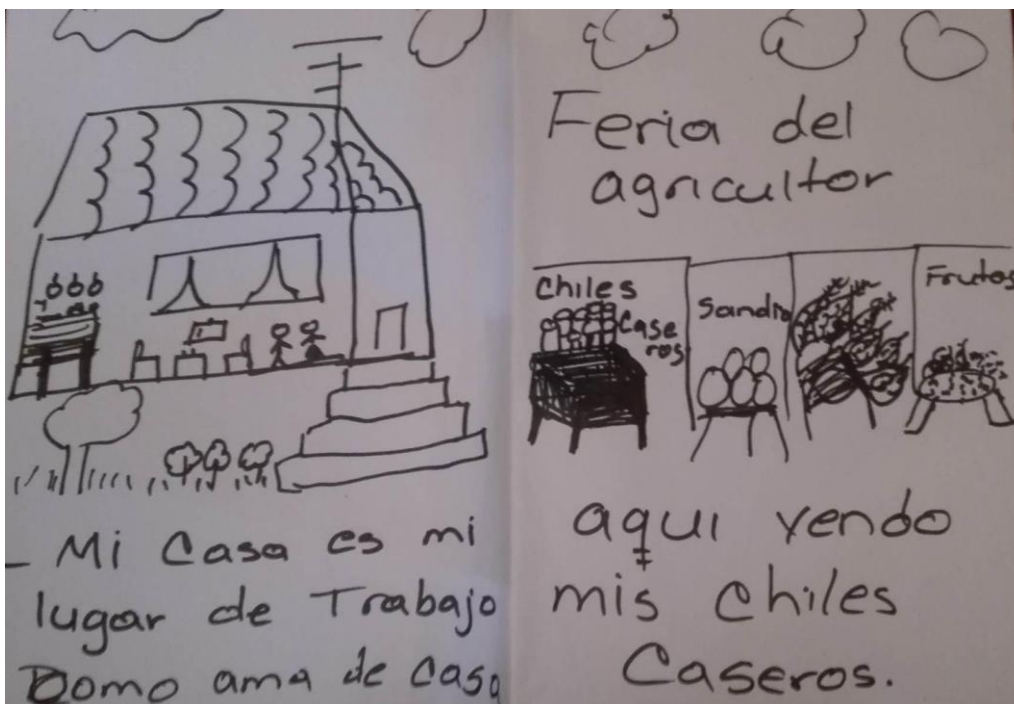 - Mi Casa es mi
lugar de Trabajo
Como ama de casa
Feria del
agricultor
Chiles
Caseros
Sandia
Frutos
aqui vendo
mis chiles
Caseros.